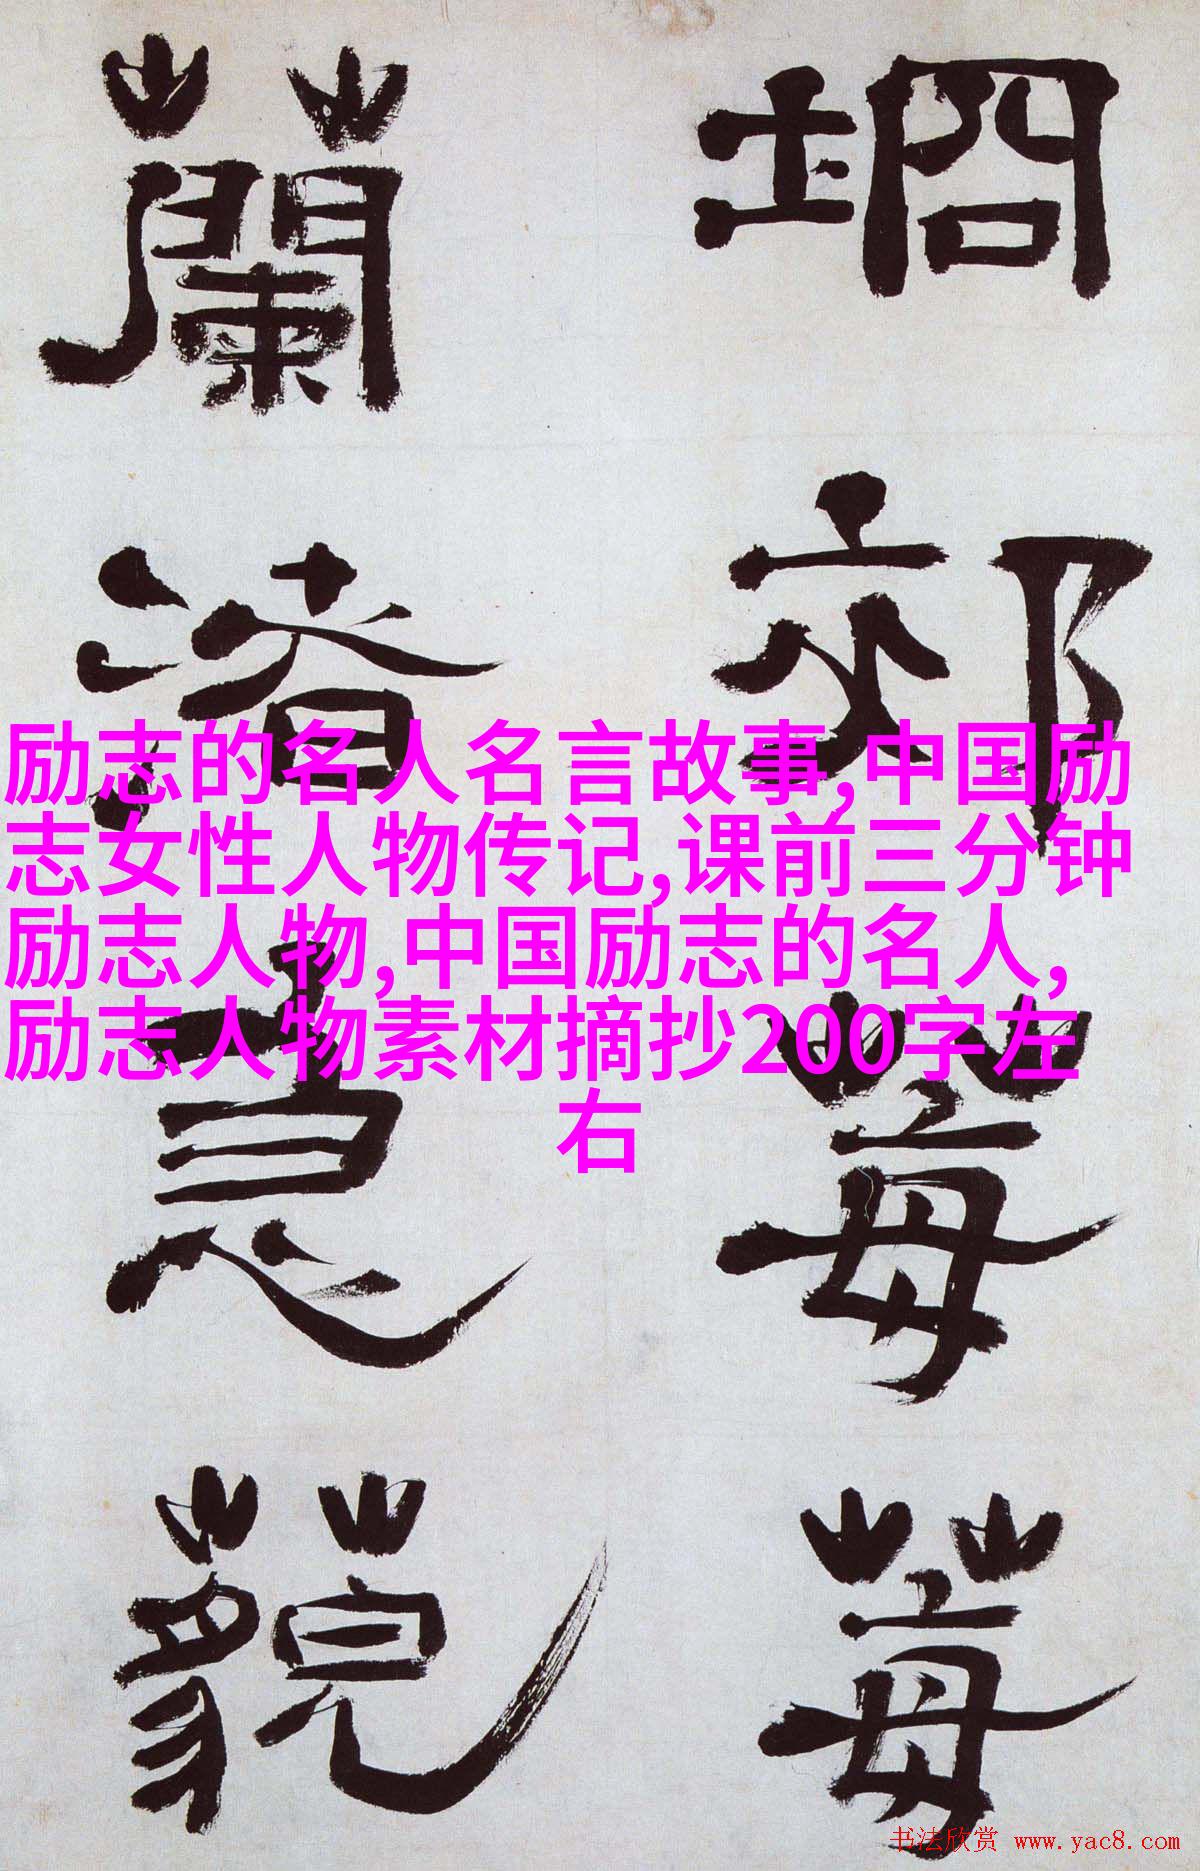 坰郊莓莓
蘭渚藐
励志的名人名言故事,中国励
志女性人物传记,课前三分钟
励志人物,中国励志的名人,
励志人物素材摘抄200字左
右
书法欣赏 www.yac8.com